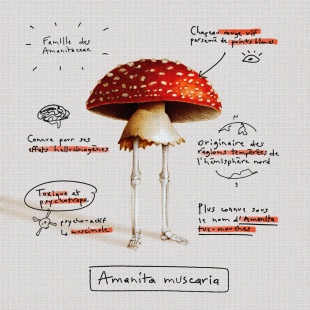 Famille des
Amanitaceae
Chapeau rouge vif
parsemé de points blancs
Connue pour ses
effets hallucinogènes
Originaire des
régions tempérées de
l'hémisphère nord
N
S
Toxique et
psychotrope
psycho-actif
↳ muscimole
Plus connue sous
le nom d'Amanite
tue-mouches
Amanita muscaria